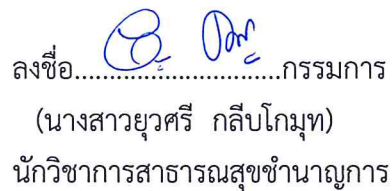 ลงชื่อ..............................กรรมการ
(นางสาวยุวศรี กลีบโกมุท)
นักวิชาการสาธารณสุขชำนาญการ